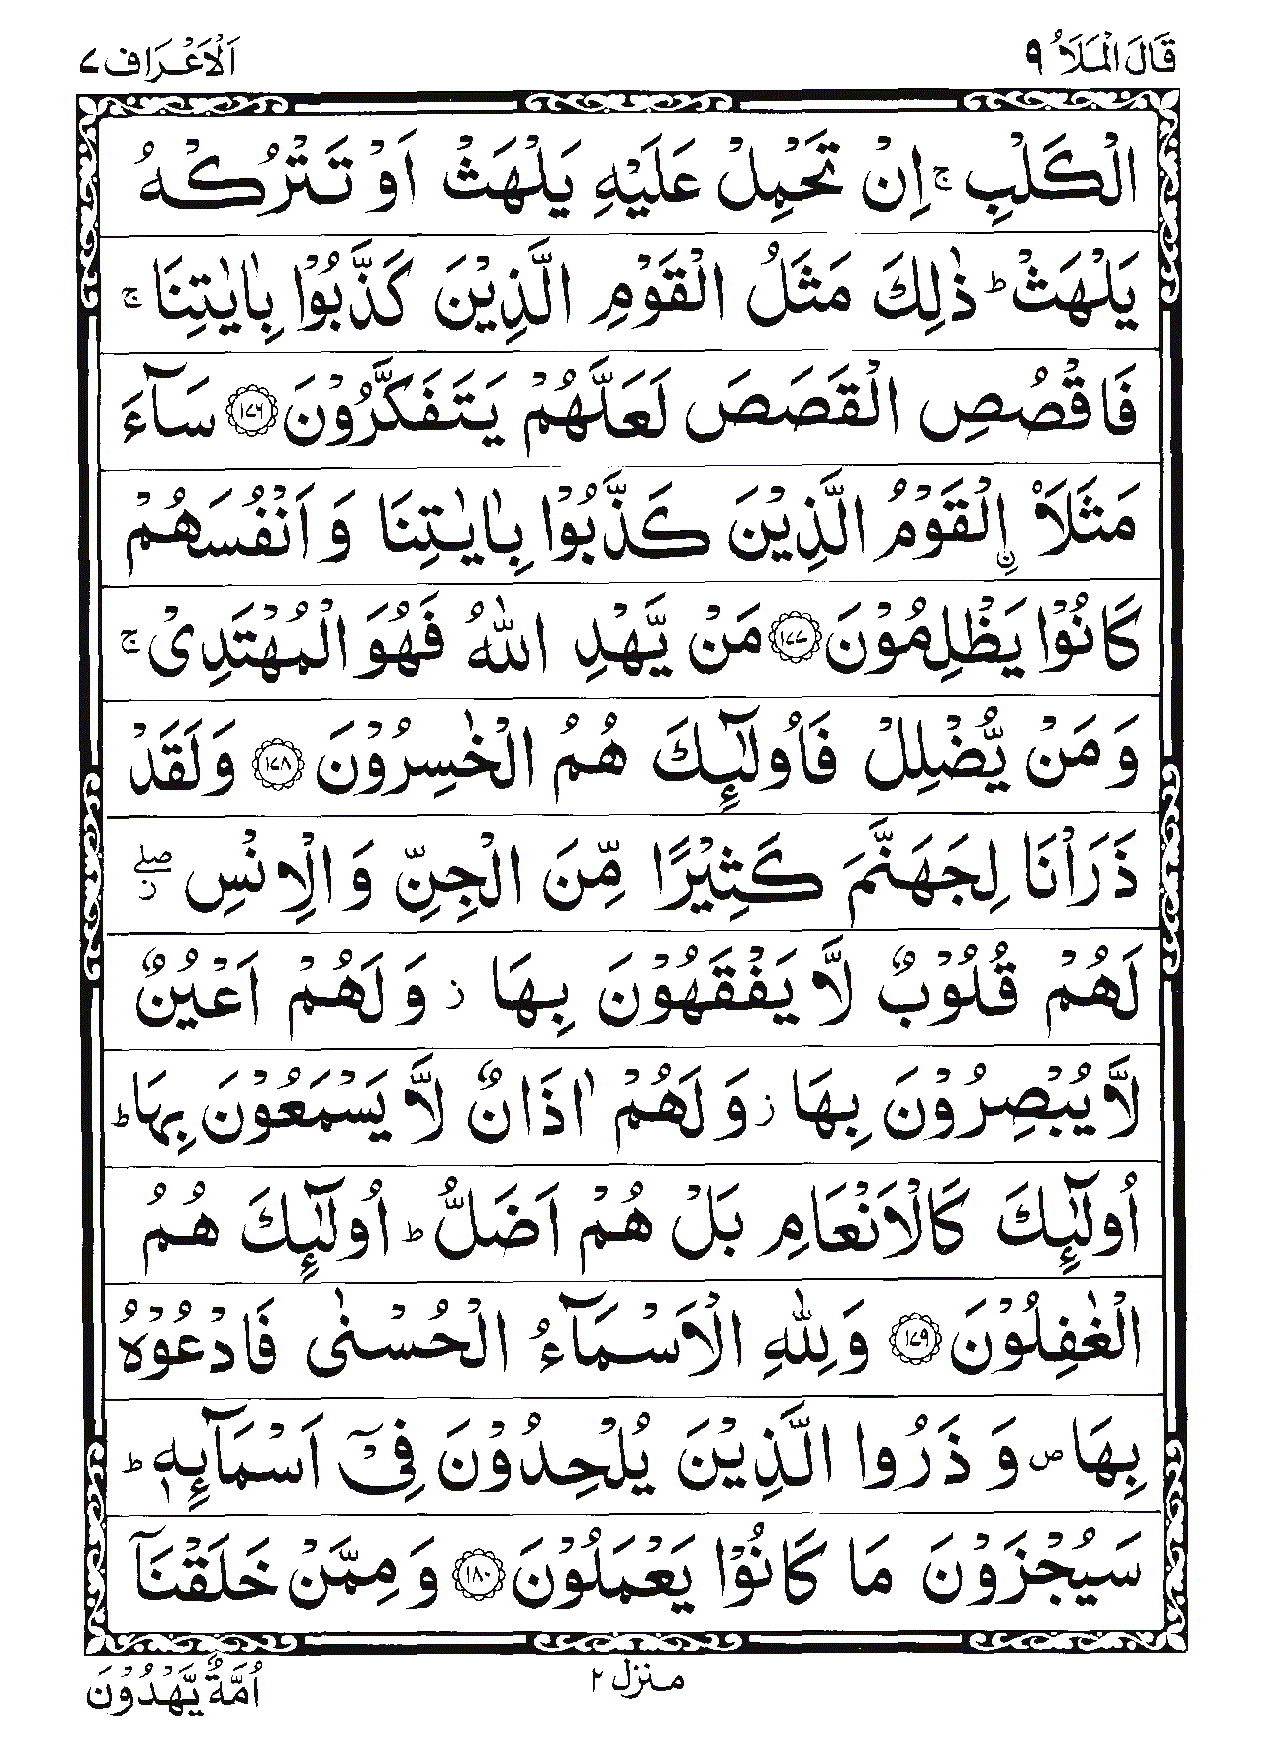 قَالَ الْمَلَاُ ٩
اَلْاَعْرَاف ٧
الْكَلْبِ ۚ اِنْ تَحْمِلْ عَلَيْهِ يَلْهَثْ اَوْ تَتْرُكْهُ
يَلْهَثْ ؕ ذٰلِكَ مَثَلُ الْقَوْمِ الَّذِيْنَ كَذَّبُوْا بِاٰيٰتِنَا ۚ
فَاقْصُصِ الْقَصَصَ لَعَلَّهُمْ يَتَفَكَّرُوْنَ ﴿١٧٦﴾ سَآءَ
مَثَلَاۨ الْقَوْمُ الَّذِيْنَ كَذَّبُوْا بِاٰيٰتِنَا وَ اَنْفُسَهُمْ
كَانُوْا يَظْلِمُوْنَ ﴿١٧٧﴾ مَنْ يَّهْدِ اللّٰهُ فَهُوَ الْمُهْتَدِىْ ۚ
وَ مَنْ يُّضْلِلْ فَاُولٰٓئِكَ هُمُ الْخٰسِرُوْنَ ﴿١٧٨﴾ وَلَقَدْ
ذَرَاْنَا لِجَهَنَّمَ كَثِيْرًا مِّنَ الْجِنِّ وَ الْاِنْسِ ۖ ز
لَهُمْ قُلُوْبٌ لَّا يَفْقَهُوْنَ بِهَا ز وَ لَهُمْ اَعْيُنٌ
لَّا يُبْصِرُوْنَ بِهَا ز وَ لَهُمْ اٰذَانٌ لَّا يَسْمَعُوْنَ بِهَا ؕ
اُولٰٓئِكَ كَالْاَنْعَامِ بَلْ هُمْ اَضَلُّ ؕ اُولٰٓئِكَ هُمُ
الْغٰفِلُوْنَ ﴿١٧٩﴾ وَلِلّٰهِ الْاَسْمَآءُ الْحُسْنٰى فَادْعُوْهُ
بِهَا ص وَ ذَرُوا الَّذِيْنَ يُلْحِدُوْنَ فِىْٓ اَسْمَآئِهٖ ؕ
سَيُجْزَوْنَ مَا كَانُوْا يَعْمَلُوْنَ ﴿١٨٠﴾ وَ مِمَّنْ خَلَقْنَآ
منزل ٢
اُمَّةٌ يَّهْدُوْنَ